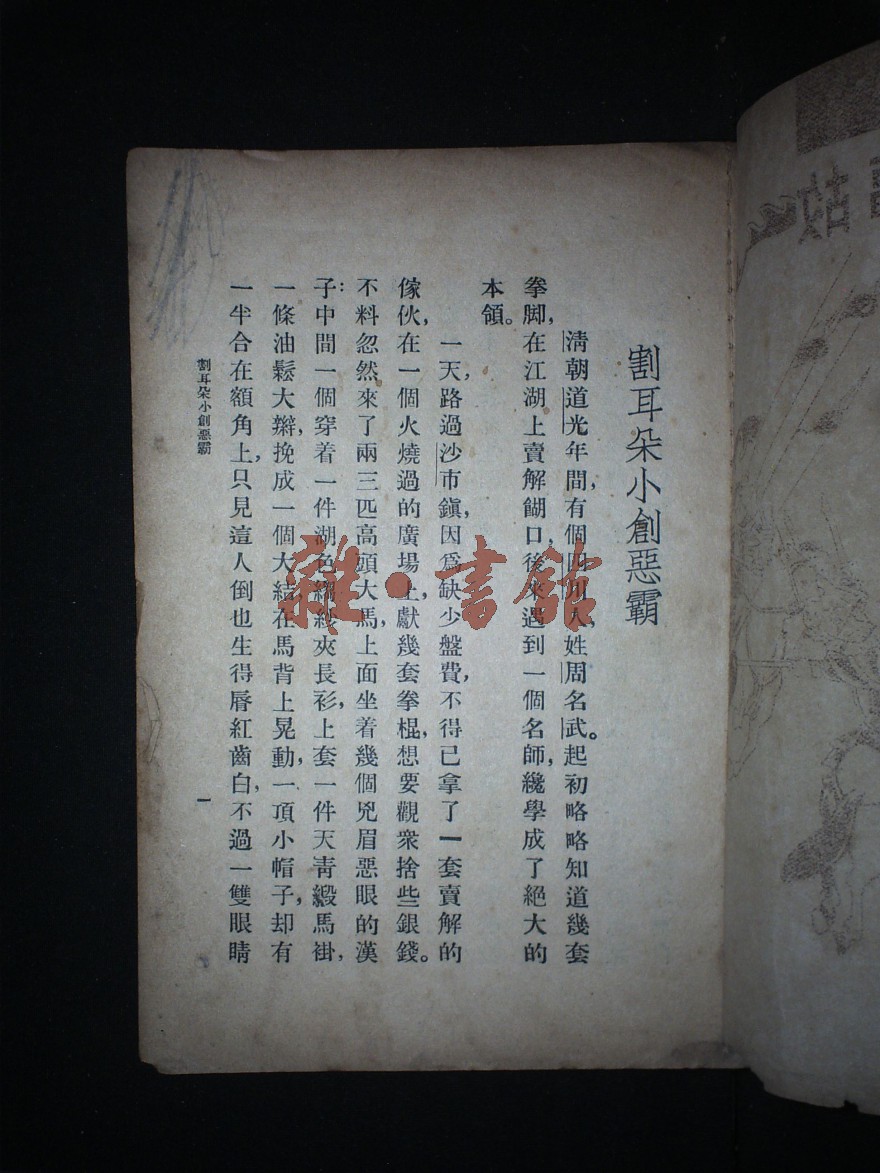 割耳朵小創惡霸
清朝道光年間，有個四川人，姓周名武。起初略略知道幾套
拳脚，在江湖上賣解餬口，後來遇到一個名師，纔學成了絕大的
本領。
一天，路過沙市鎮，因爲缺少盤費，不得已拿了一套賣解的
傢伙，在一個火燒過的廣場上，獻幾套拳棍，想要觀衆捨些銀錢。
不料忽然來了兩三匹高頭大馬，上面坐着幾個兇眉惡眼的漢
子：中間一個穿着一件湖色縐紗夾長衫，上套一件天青緞馬褂，
一條油鬆大辮，挽成一個大結，在馬背上晃動，一頂小帽子，却有
一半合在額角上，只見這人倒也生得脣紅齒白，不過一雙眼睛
割耳朵小創惡霸
一
故
雜·書館